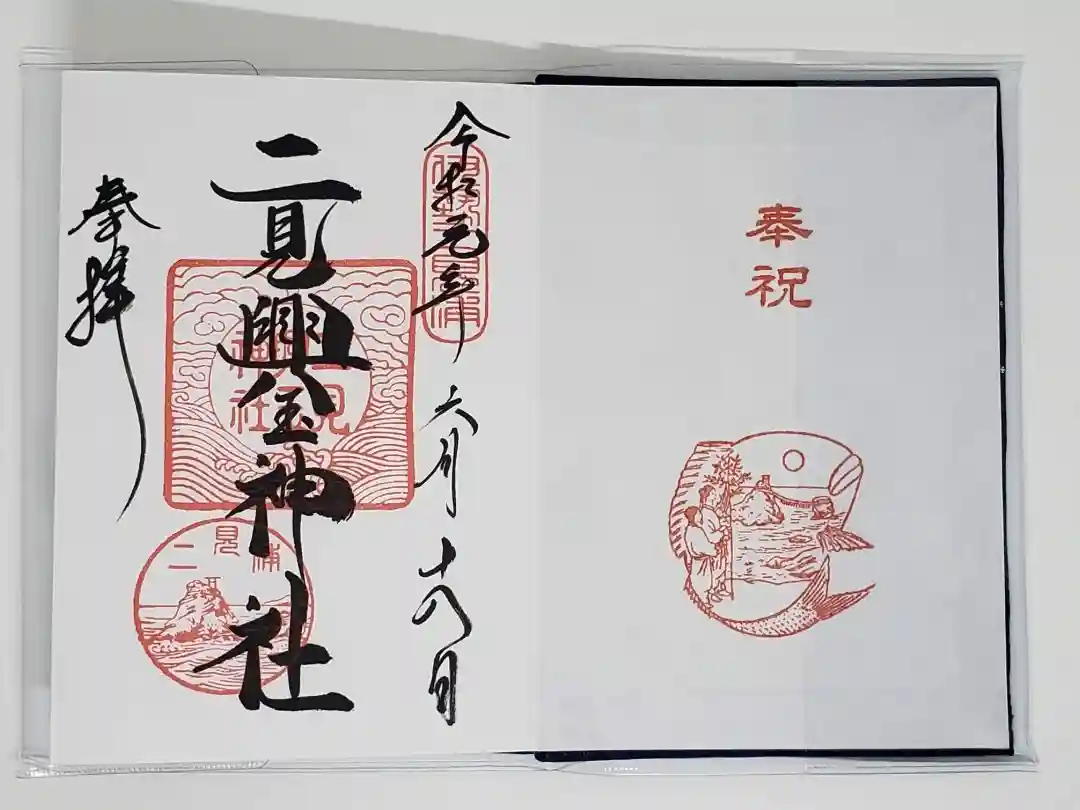 奉祝
令和元年六月十八日
伊勢二見浦
二見興玉神社
二見浦
奉拝